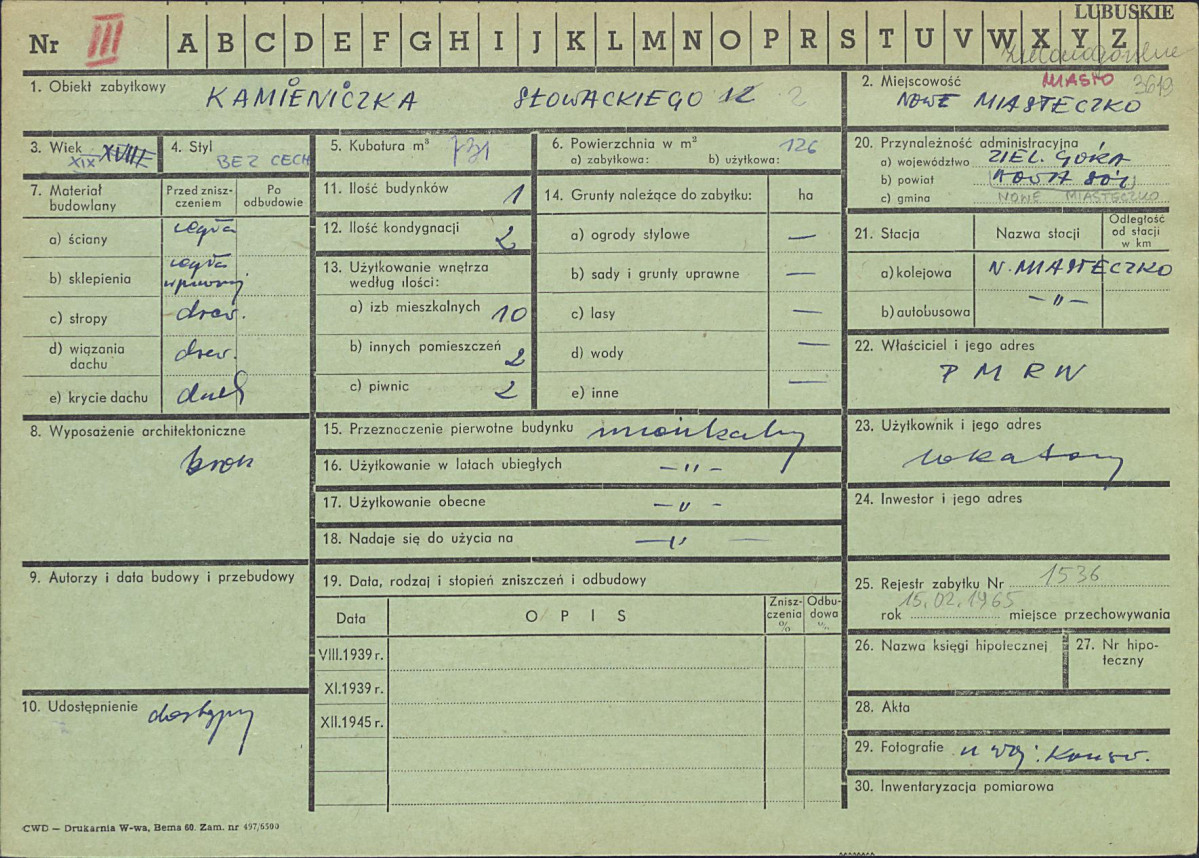 LUBUSKIE
Nr III A B C D E F G H I J K L M N O P R S T U V W X Y Z
zielonogórskie
1. Obiekt zabytkowy KAMIENICZKA SŁOWACKIEGO 12 2
2. Miejscowość MIASTO 3619
NOWE MIASTECZKO
3. Wiek XIX XVIII
4. Styl BEZ CECH
5. Kubatura m³ 731
6. Powierzchnia w m² 126
a) zabytkowa: b) użytkowa:
7. Materiał budowlany
Przed znisz-czeniem
Po odbudowie
a) ściany cegła
b) sklepienia cegła
c) stropy drew.
d) wiązania dachu drew.
e) krycie dachu dach
8. Wyposażenie architektoniczne
brak
9. Autorzy i data budowy i przebudowy
10. Udostępnienie dostępny
11. Ilość budynków 1
12. Ilość kondygnacji 2
13. Użytkowanie wnętrza według ilości:
a) izb mieszkalnych 10
b) innych pomieszczeń 2
c) piwnic 2
14. Grunty należące do zabytku: ha
a) ogrody stylowe —
b) sady i grunty uprawne —
c) lasy —
d) wody —
e) inne —
15. Przeznaczenie pierwotne budynku mieszkalny
16. Użytkowanie w latach ubiegłych -"-
17. Użytkowanie obecne -"-
18. Nadaje się do użycia na -"-
19. Data, rodzaj i stopień zniszczeń i odbudowy
Data O P I S Znisz-czenia % Odbu-dowa %
VIII.1939 r.
XI.1939 r.
XII.1945 r.
20. Przynależność administracyjna
a) województwo ZIEL. GÓRA
b) powiat NOWA SÓL
c) gmina NOWE MIASTECZKO
21. Stacja Nazwa stacji Odległość od stacji w km
a) kolejowa N. MIASTECZKO
b) autobusowa -"-
22. Właściciel i jego adres
P M R N
23. Użytkownik i jego adres
lokatorzy
24. Inwestor i jego adres
25. Rejestr zabytku Nr 1536
15.02.1965
rok miejsce przechowywania
26. Nazwa księgi hipotecznej
27. Nr hipo-teczny
28. Akta
29. Fotografie u woj. Konserw.
30. Inwentaryzacja pomiarowa
CWD — Drukarnia W-wa, Bema 60. Zam. nr 497/6500